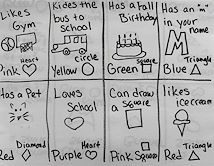 Likes
Gym
Pink Heart
Rides the
bus to
school
Yellow circle
Has a Fall
Birthday
Green square
Has an "m"
in your
name
M
Blue Triangle
Has a Pet
Red Diamond
Loves
School
Purple Heart
Can draw
a square
Pink Square
likes
ice cream
Red Triangle